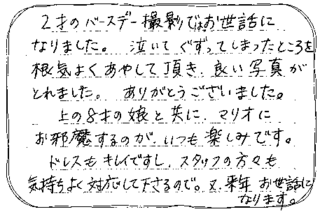 2才のバースデー撮影ではお世話に
なりました。泣いてぐずってしまったところを
根気よくあやして頂き、良い写真が
とれました。ありがとうございました。
上の8才の娘と共に、マリオに
お邪魔するのが、いつも楽しみです。
ドレスもキレイですし、スタッフの方々も
気持ちよく対応して下さるので。又、来年お世話に
なります。